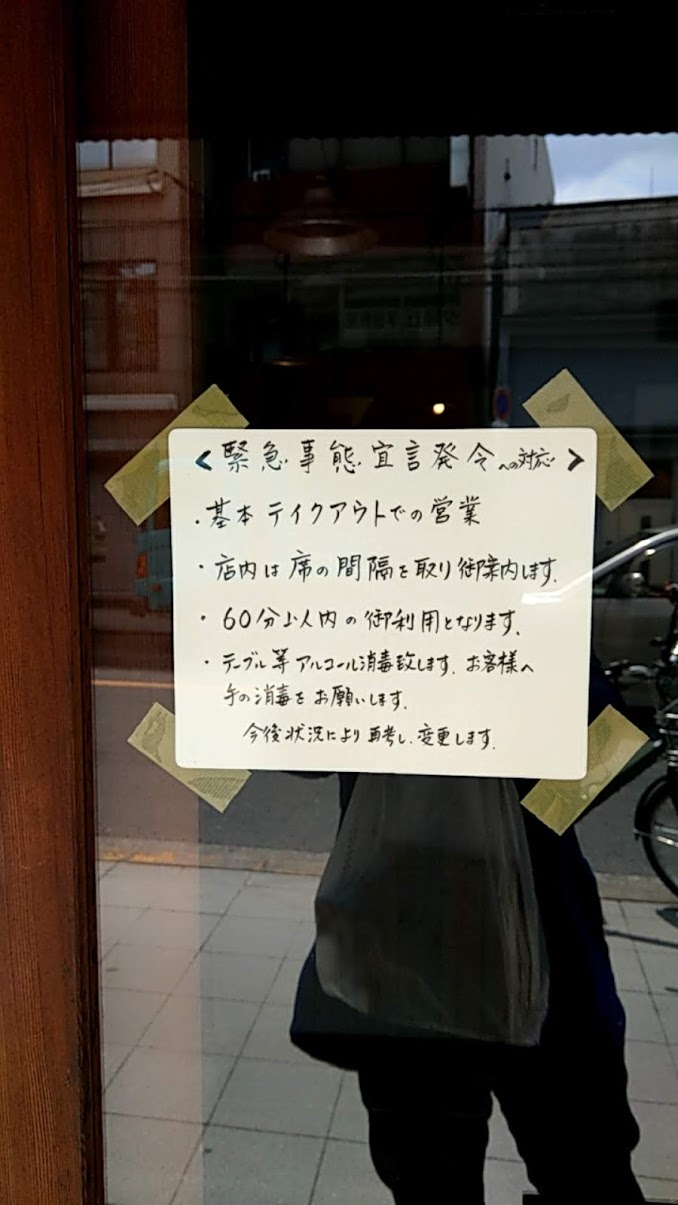 <緊急事態宣言発令への対応>
・基本 テイクアウトでの営業
・店内は席の間隔を取り御案内します.
・60分以内の御利用となります.
・テーブル等アルコール消毒致します. お客様へ
手の消毒をお願いします.
今後状況により再考し、変更します.